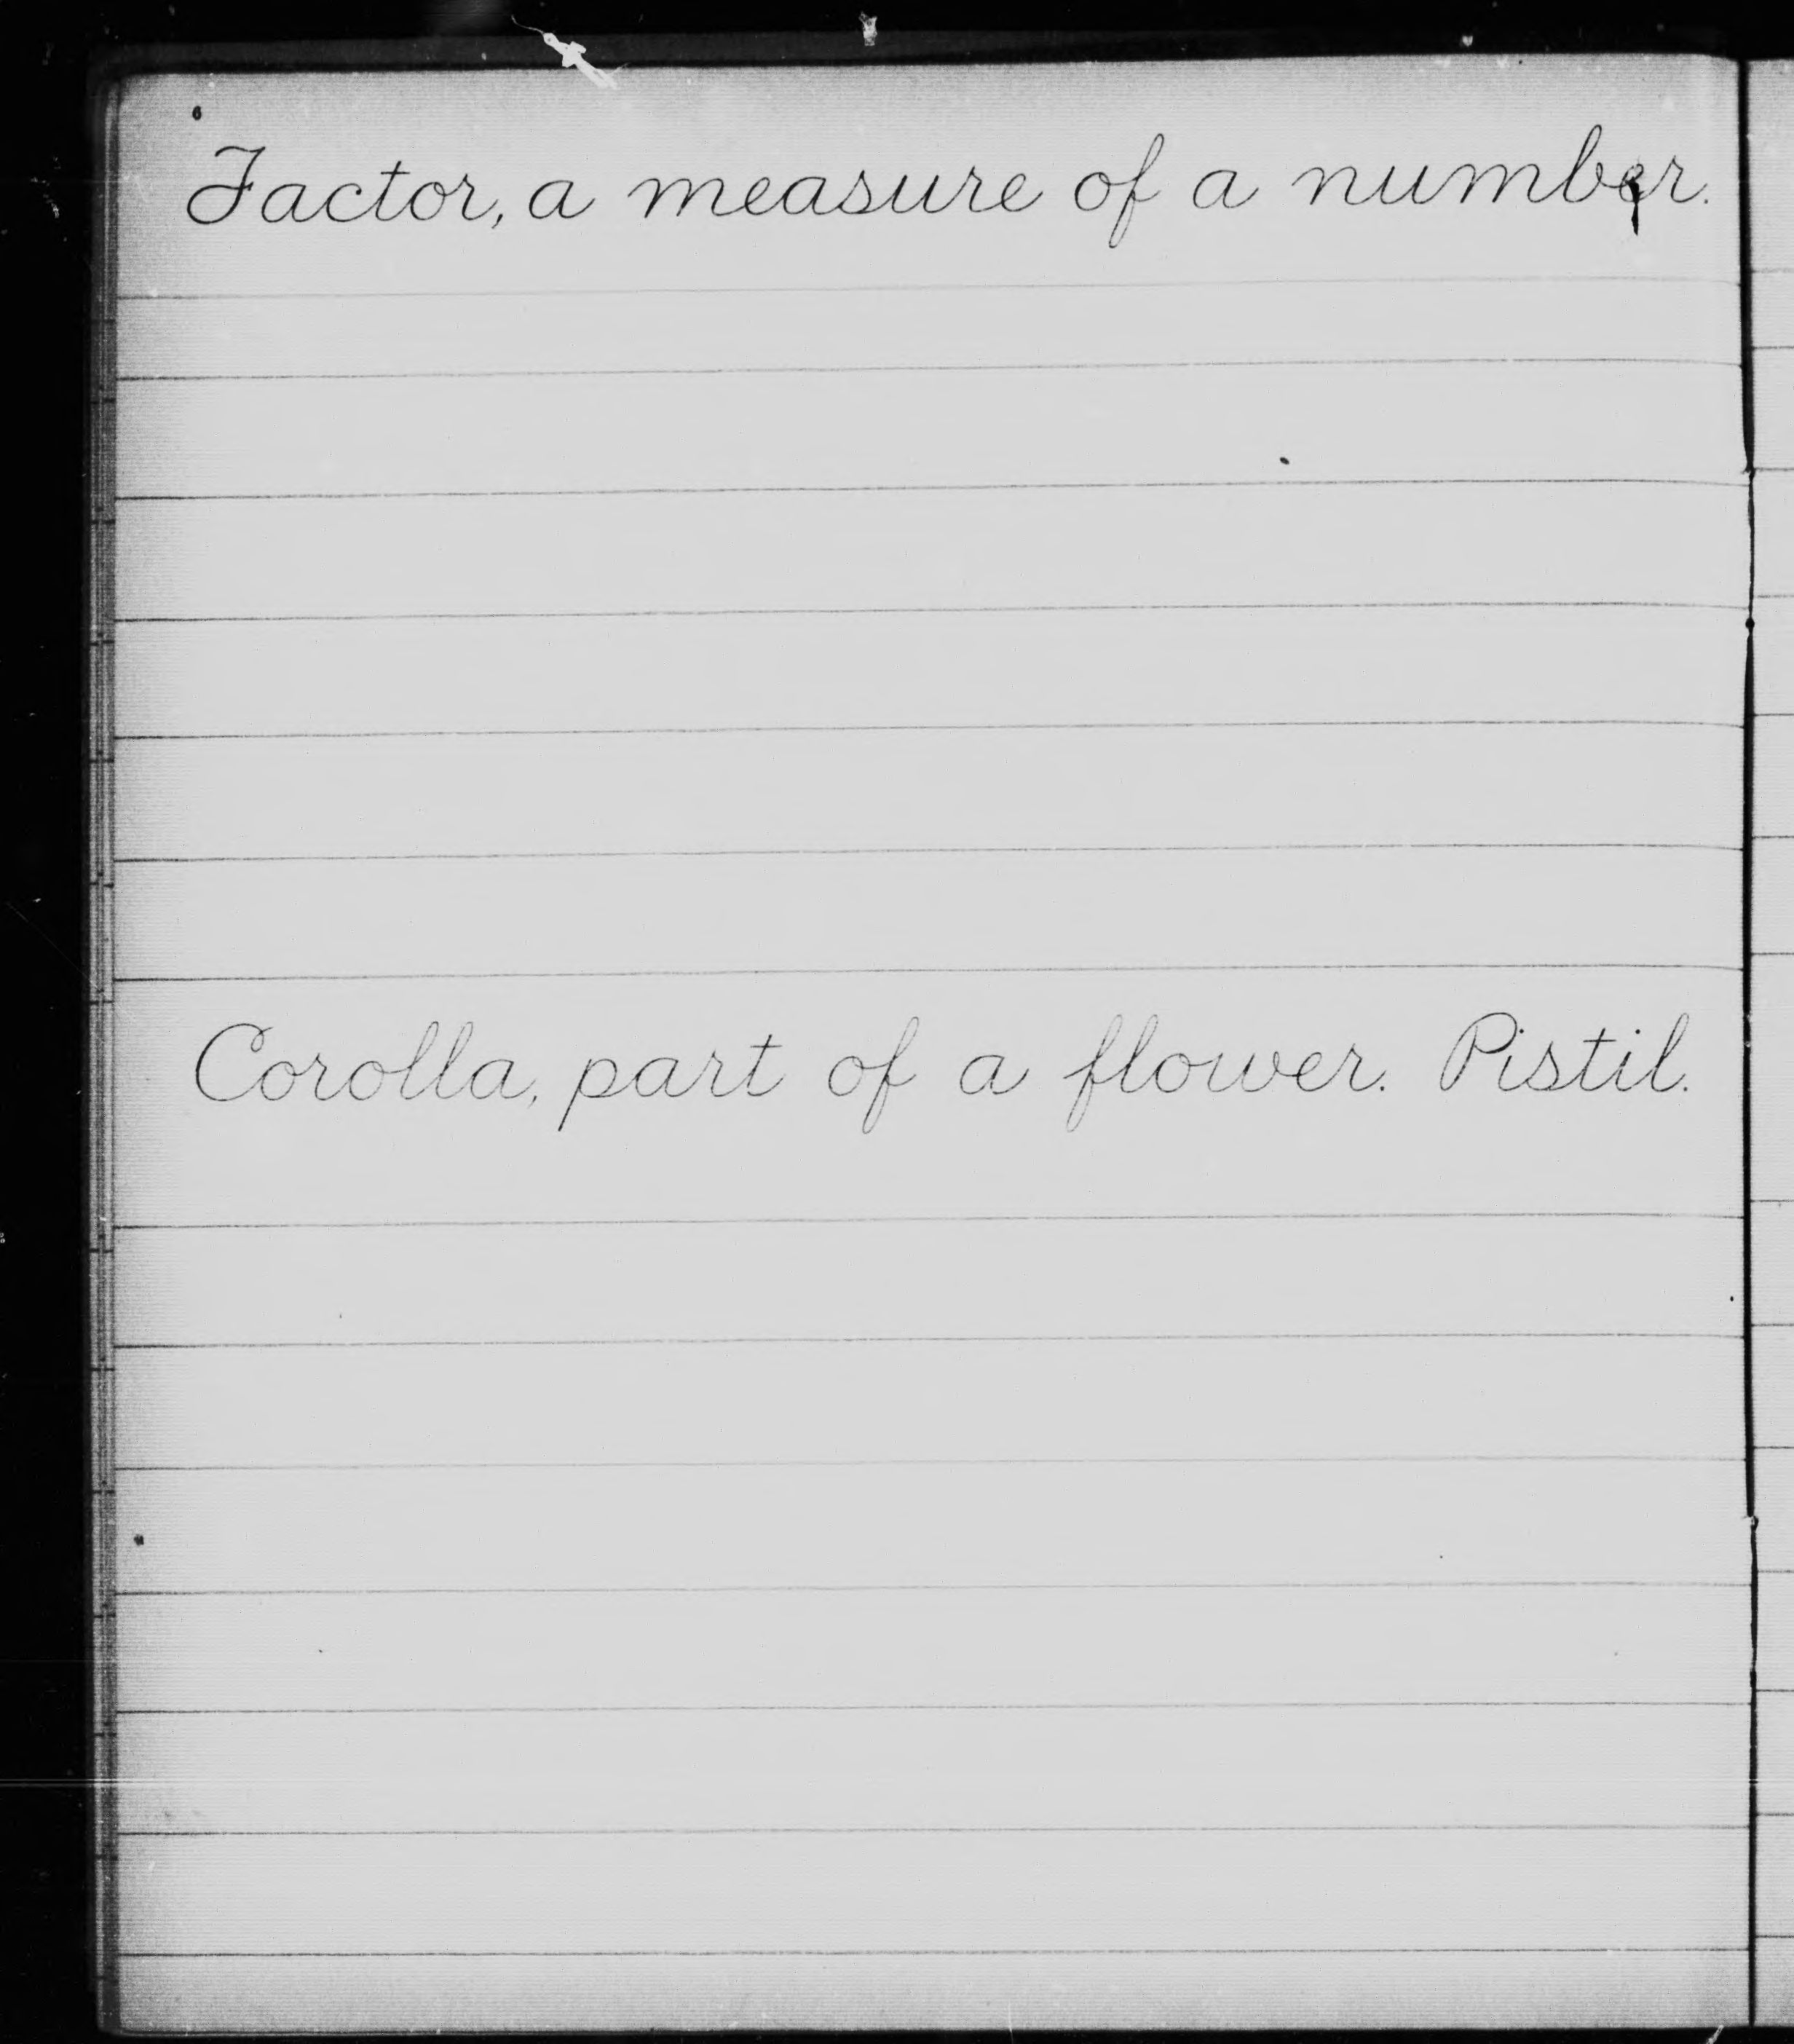 Factor, a measure of a number.
Corolla, part of a flower. Pistil.